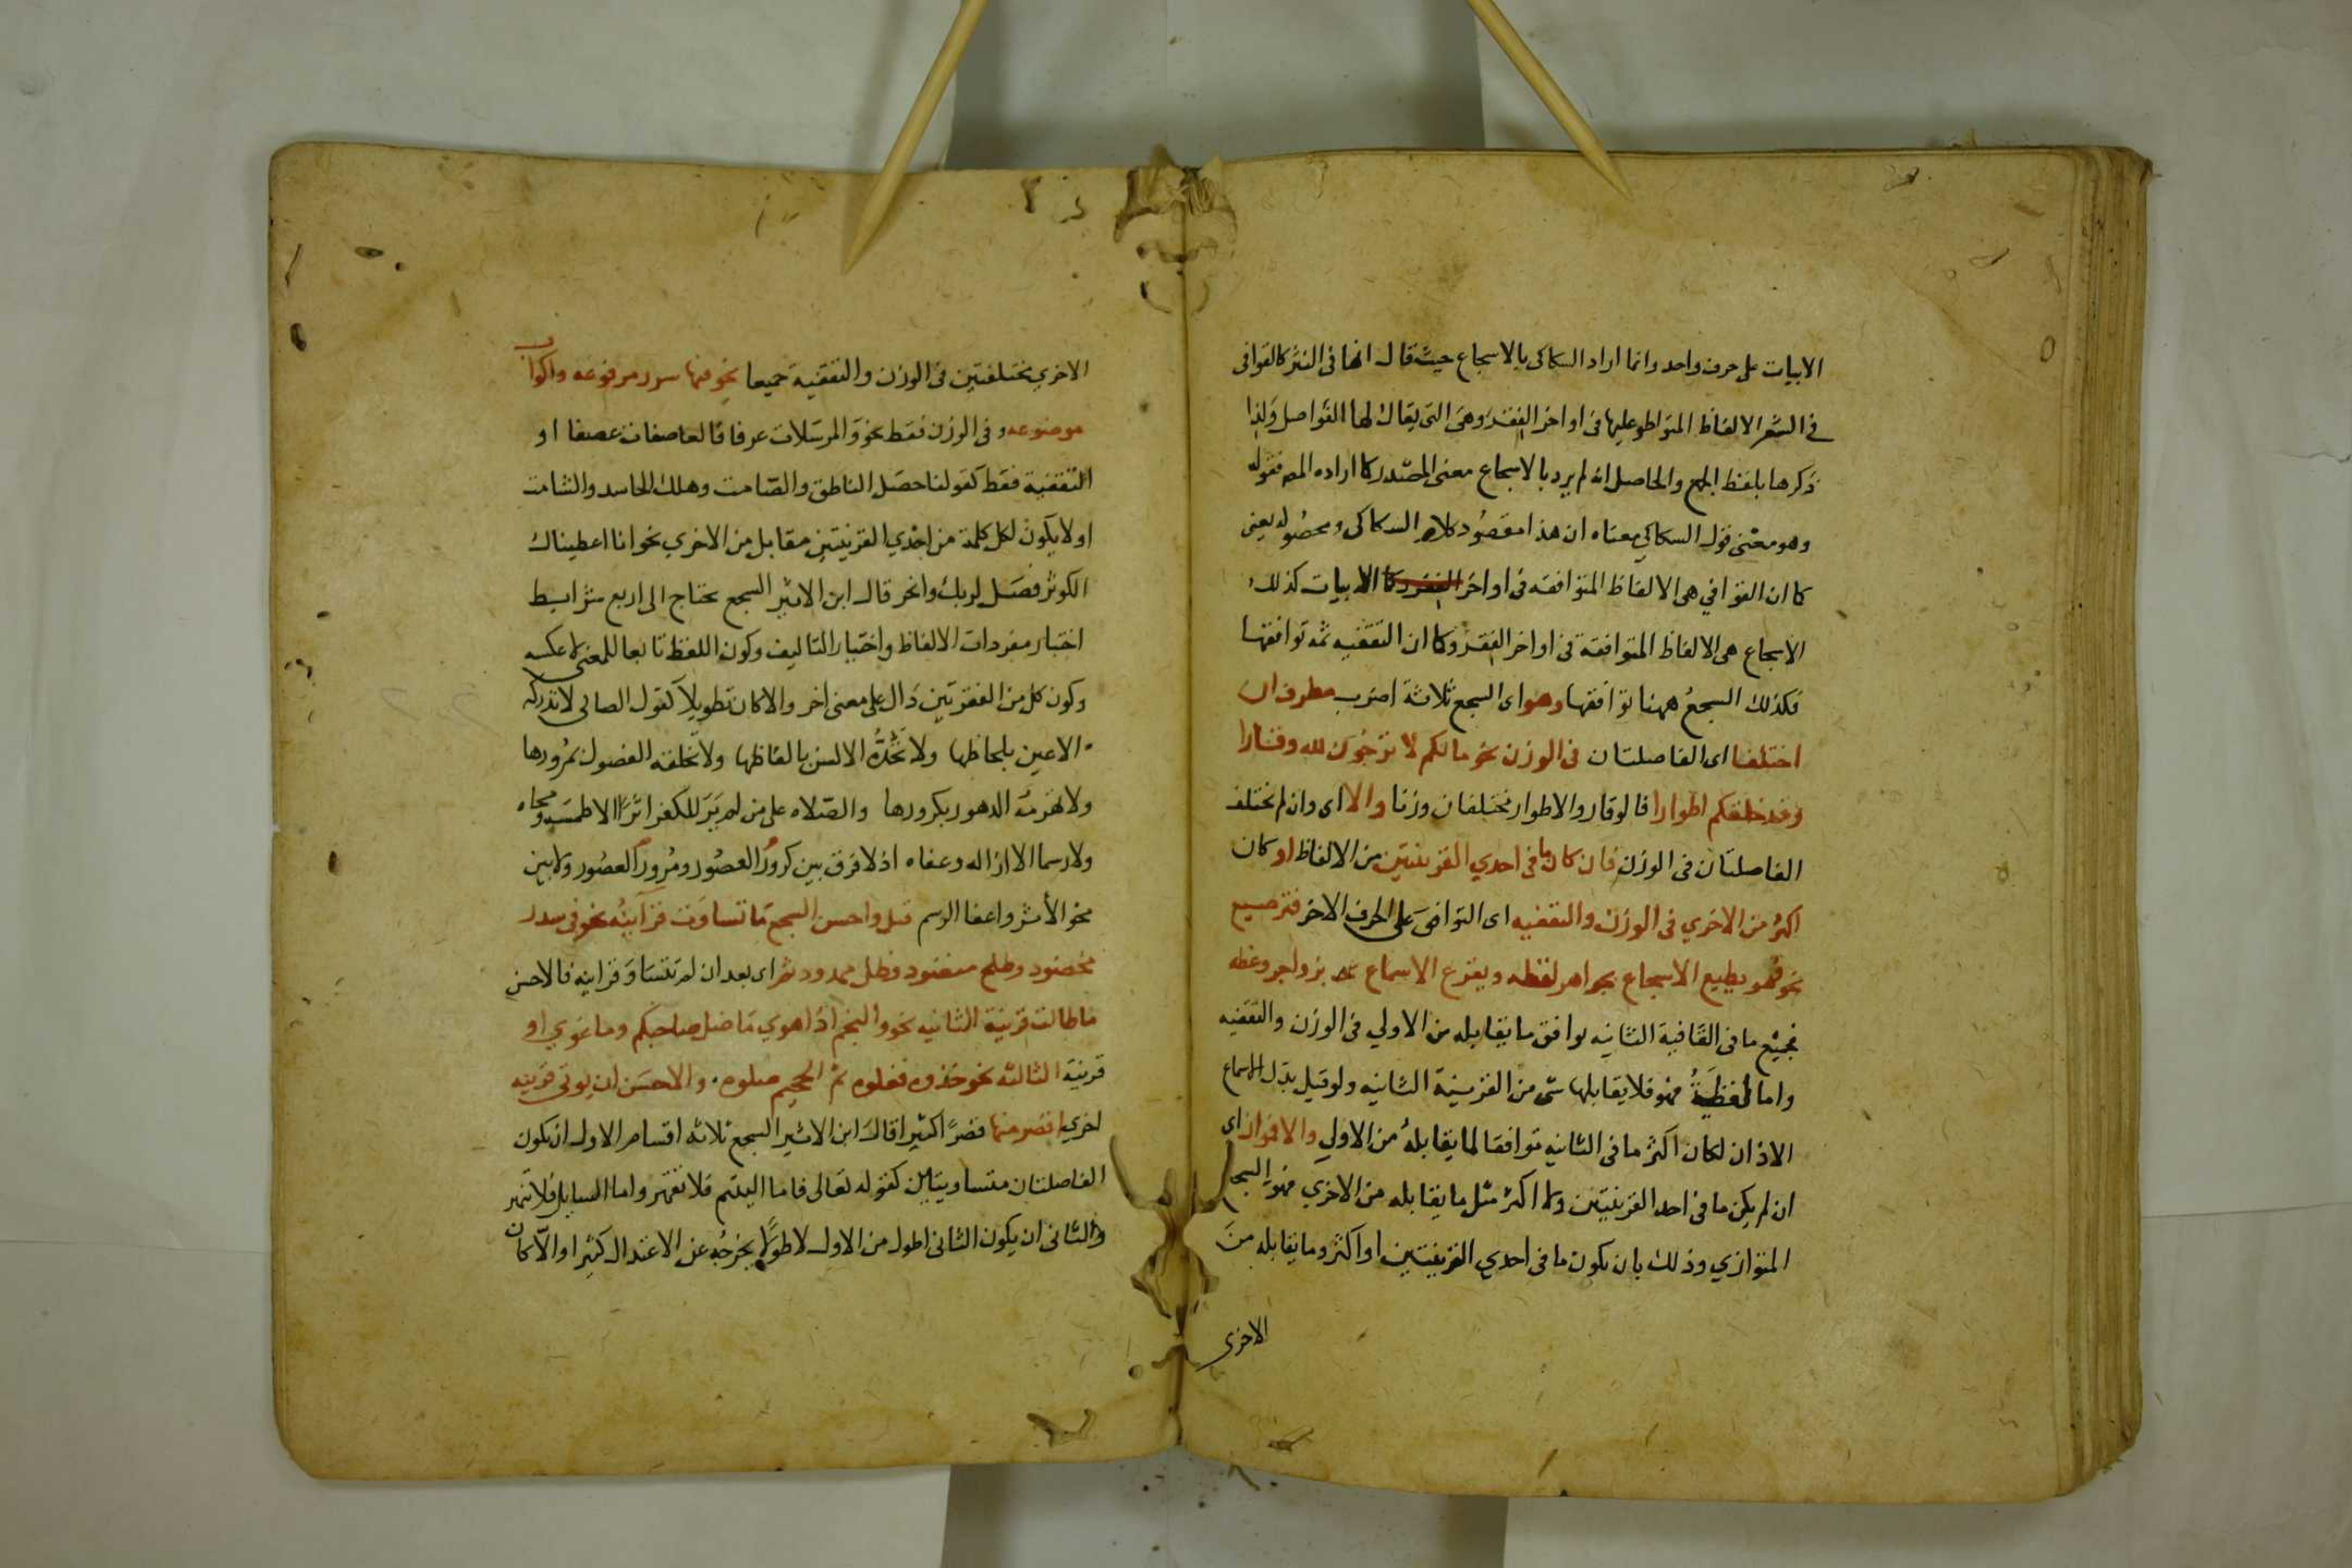 الابيات على حرف واحد وانما اراد السكاكى بالاسجاع حيث قال انها فى النثر كالقوافى
فى الشعر الالفاظ المتواطؤ عليها فى اواخر الفقر وهى التى يقال لها الفواصل ولذا
ذكرها بلفظ الجمع والحاصل انه لم يرد بالاسجاع معنى المصدر كما اراده المص فقوله
وهو معنى قول السكاكي معناه ان هذا مقصود كلام السكاكى ومحصوله يعنى
كما ان القوافي هى الالفاظ المتوافقه فى اواخر الابيات كذلك
الاسجاع هى الالفاظ المتوافقة فى اواخر الفقر وكما ان التقفيه ثمه توافقها
فكذلك السجع ههنا توافقها وهو اى السجع ثلاثة اضرب مطرف ان
اختلفا اى الفاصلتان فى الوزن نحو مالكم لا ترجون لله وقارا
وقد خلقكم اطوارا فالوقار والاطوار مختلفان وزنا والا اى وان لم تختلف
الفاصلتان فى الوزن فان كان ما فى احدي القرينتين من الالفاظ او كان
اكثره من الاخري فى الوزن والتقفيه اى التوافق على الحرف الاخر فترصيع
نحو فهو يطبع الاسجاع بجواهر لفظه ويقرع الاسماع بزواجر وعظه
فجميع ما فى القافية الثانيه يوافق ما يقابله من الاولي فى الوزن والتقفيه
واما لفظة فهو فلا يقابلها شى من القرينة الثانيه ولو قيل بدل الاسماع
الاذان لكان اكثر ما فى الثانيه توافقا لما يقابله من الاولي والا فمتواز اى
ان لم يكن ما فى احد القرينتين ولا اكثر مثل ما يقابله من الاخري فهو السجع
المتوازي وذلك بان يكون ما فى احدي القرينتين او اكثر وما يقابله من
الاخرى
الاخري مختلفتين فى الوزن والتقفية جميعا نحو فيها سرر مرفوعه واكواب
موضوعه وفى الوزن فقط نحو والمرسلات عرفا فالعاصفات عصفا او
التقفية فقط كقولنا حصل الناطق والصامت وهلك الحاسد والشامت
او لا يكون لكل كلمة من احدي القرينتين مقابل من الاخري نحو انا اعطيناك
الكوثر فصل لربك وانحر قال ابن الاثير السجع يحتاج الى اربع شرايط
اختيار مفردات الالفاظ واختيار التاليف وكون اللفظ تابعا للمعنى لا عكسه
وكون كل من الفقرتين دال على معنى اخر والا كان تطويلا كقول الصابى لا تدركه
الاعين بلحاظها ولا تحده الالسن بالفاظها ولا تخلقه العصور بمرورها
ولا تهرمه الدهور بكرورها والصلاه على من لم ير للكفر اثرا الا طمسه ومحاه
ولا رسما الا ازاله وعفاه اذ لا فرق بين كرور العصور ومرور العصور ولا بين
محو الأثر واعفا الرسم قيل واحسن السجع ما تساوت قراينه نحو فى سدر
مخضود وطلح منضود وظل ممدود ثم اى بعد ان لم تتساو قراينه فالاحسن
ما طالت قرينة الثانيه نحو والنجم اذا هوي ما ضل صاحبكم وما غوي او
قرينة الثالثه نحو خذوه فغلوه ثم الجحيم صلوه والاحسن ان يوتى قرينه
اخري اقصر منها قصرا كثيرا قال ابن الاثير السجع ثلاثه اقسام الاول ان يكون
الفاصلتان متساويتين كقوله تعالى فاما اليتيم فلا تقهر واما السايل فلا تنهر
والثانى ان يكون الثانى اطول من الاول لا طولا يخرجه عن الاعتدال كثيرا والا كان